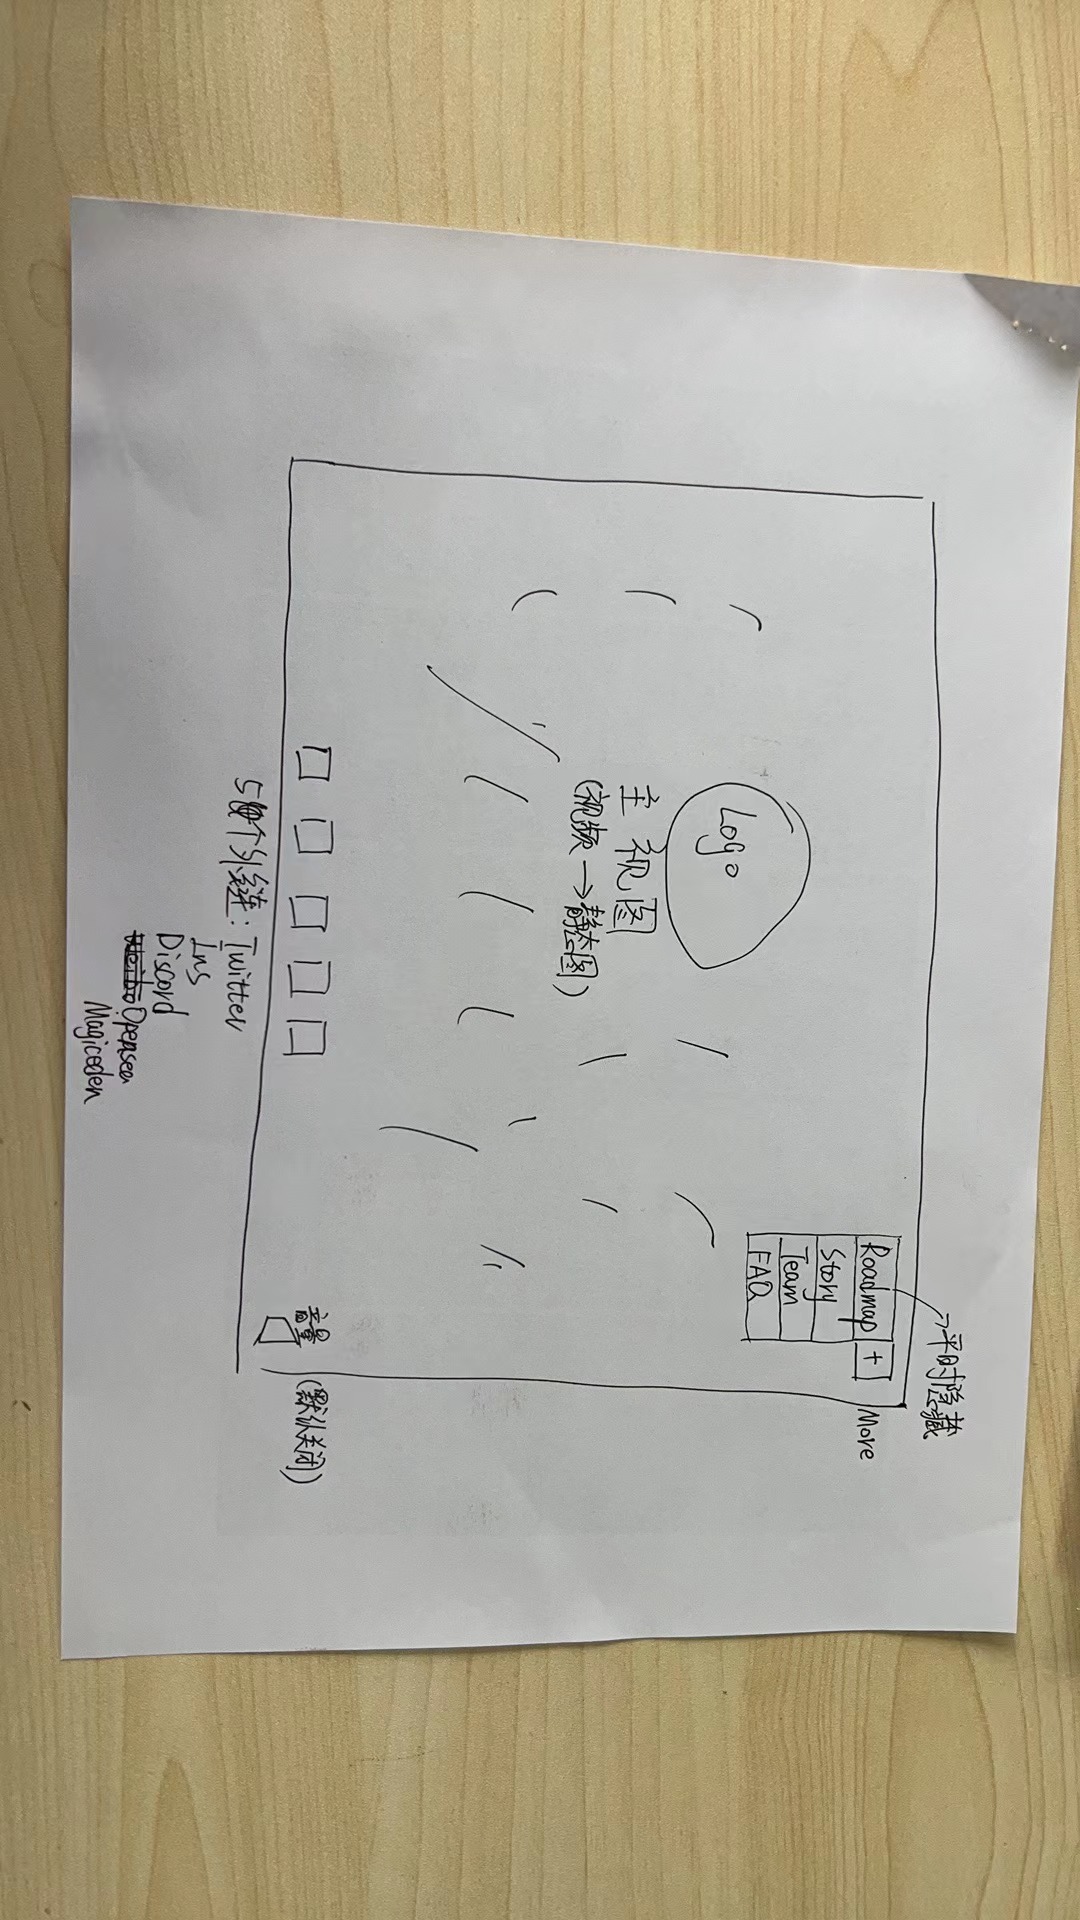 平时隐藏
Roadmap +
More
Story
Team
FAQ
Logo
主视图
(视频→静态图)
音量
(默认关闭)
5个外链: Twitter
Ins
Discord
Opensea
Magiceden